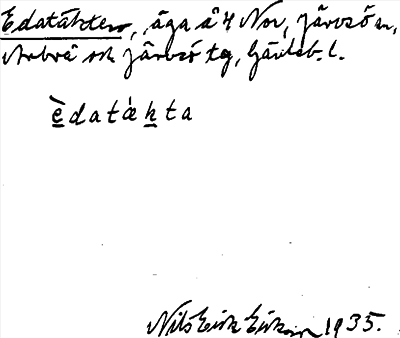 Edatäkten, äga å 4 Nor, Järvsö sn,
Arbrå och Järvsö tg, Gävleb. l.
è̲datǽk̲ta
Nils Eirik Eriksson 1935.